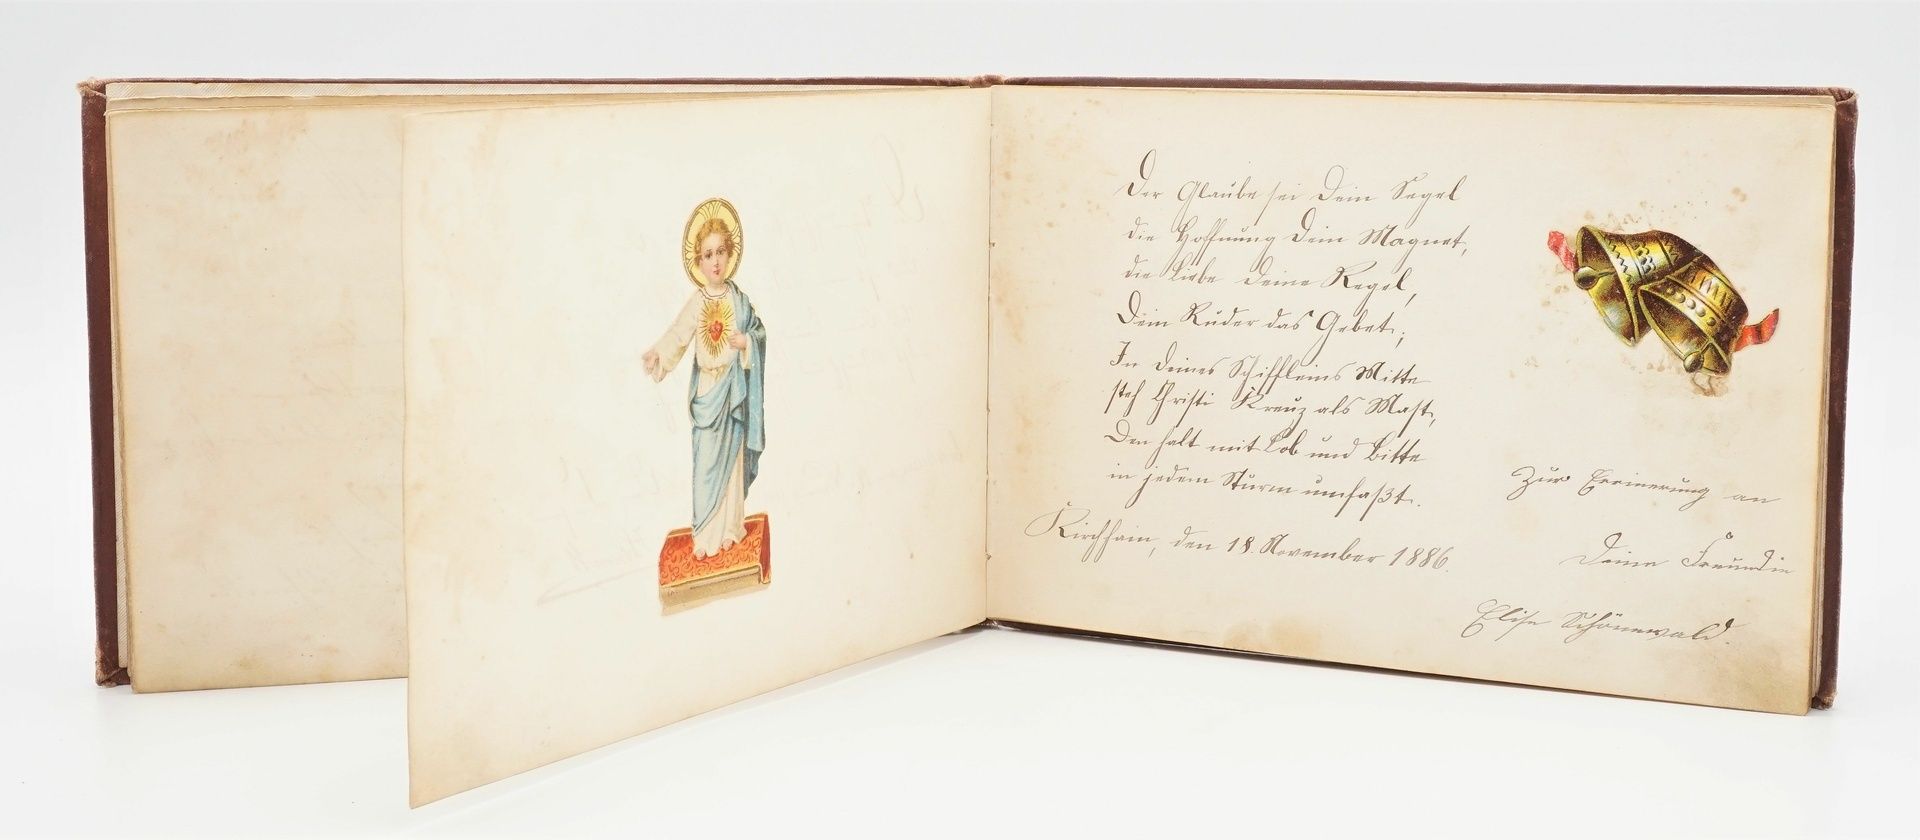 Der Glaube sei Dein Segel
die Hoffnung Dein Magnet,
die Liebe Deine Regel,
Dein Ruder das Gebet;
In Deines Schiffleins Mitte
steh Christi Kreuz als Mast,
Den halt mit Lob und Bitte
in jedem Sturm umfaßt.
Kirchhain, den 18. November 1886.
Zur Erinerung an
Deine Freundin
Elise Schönewald.